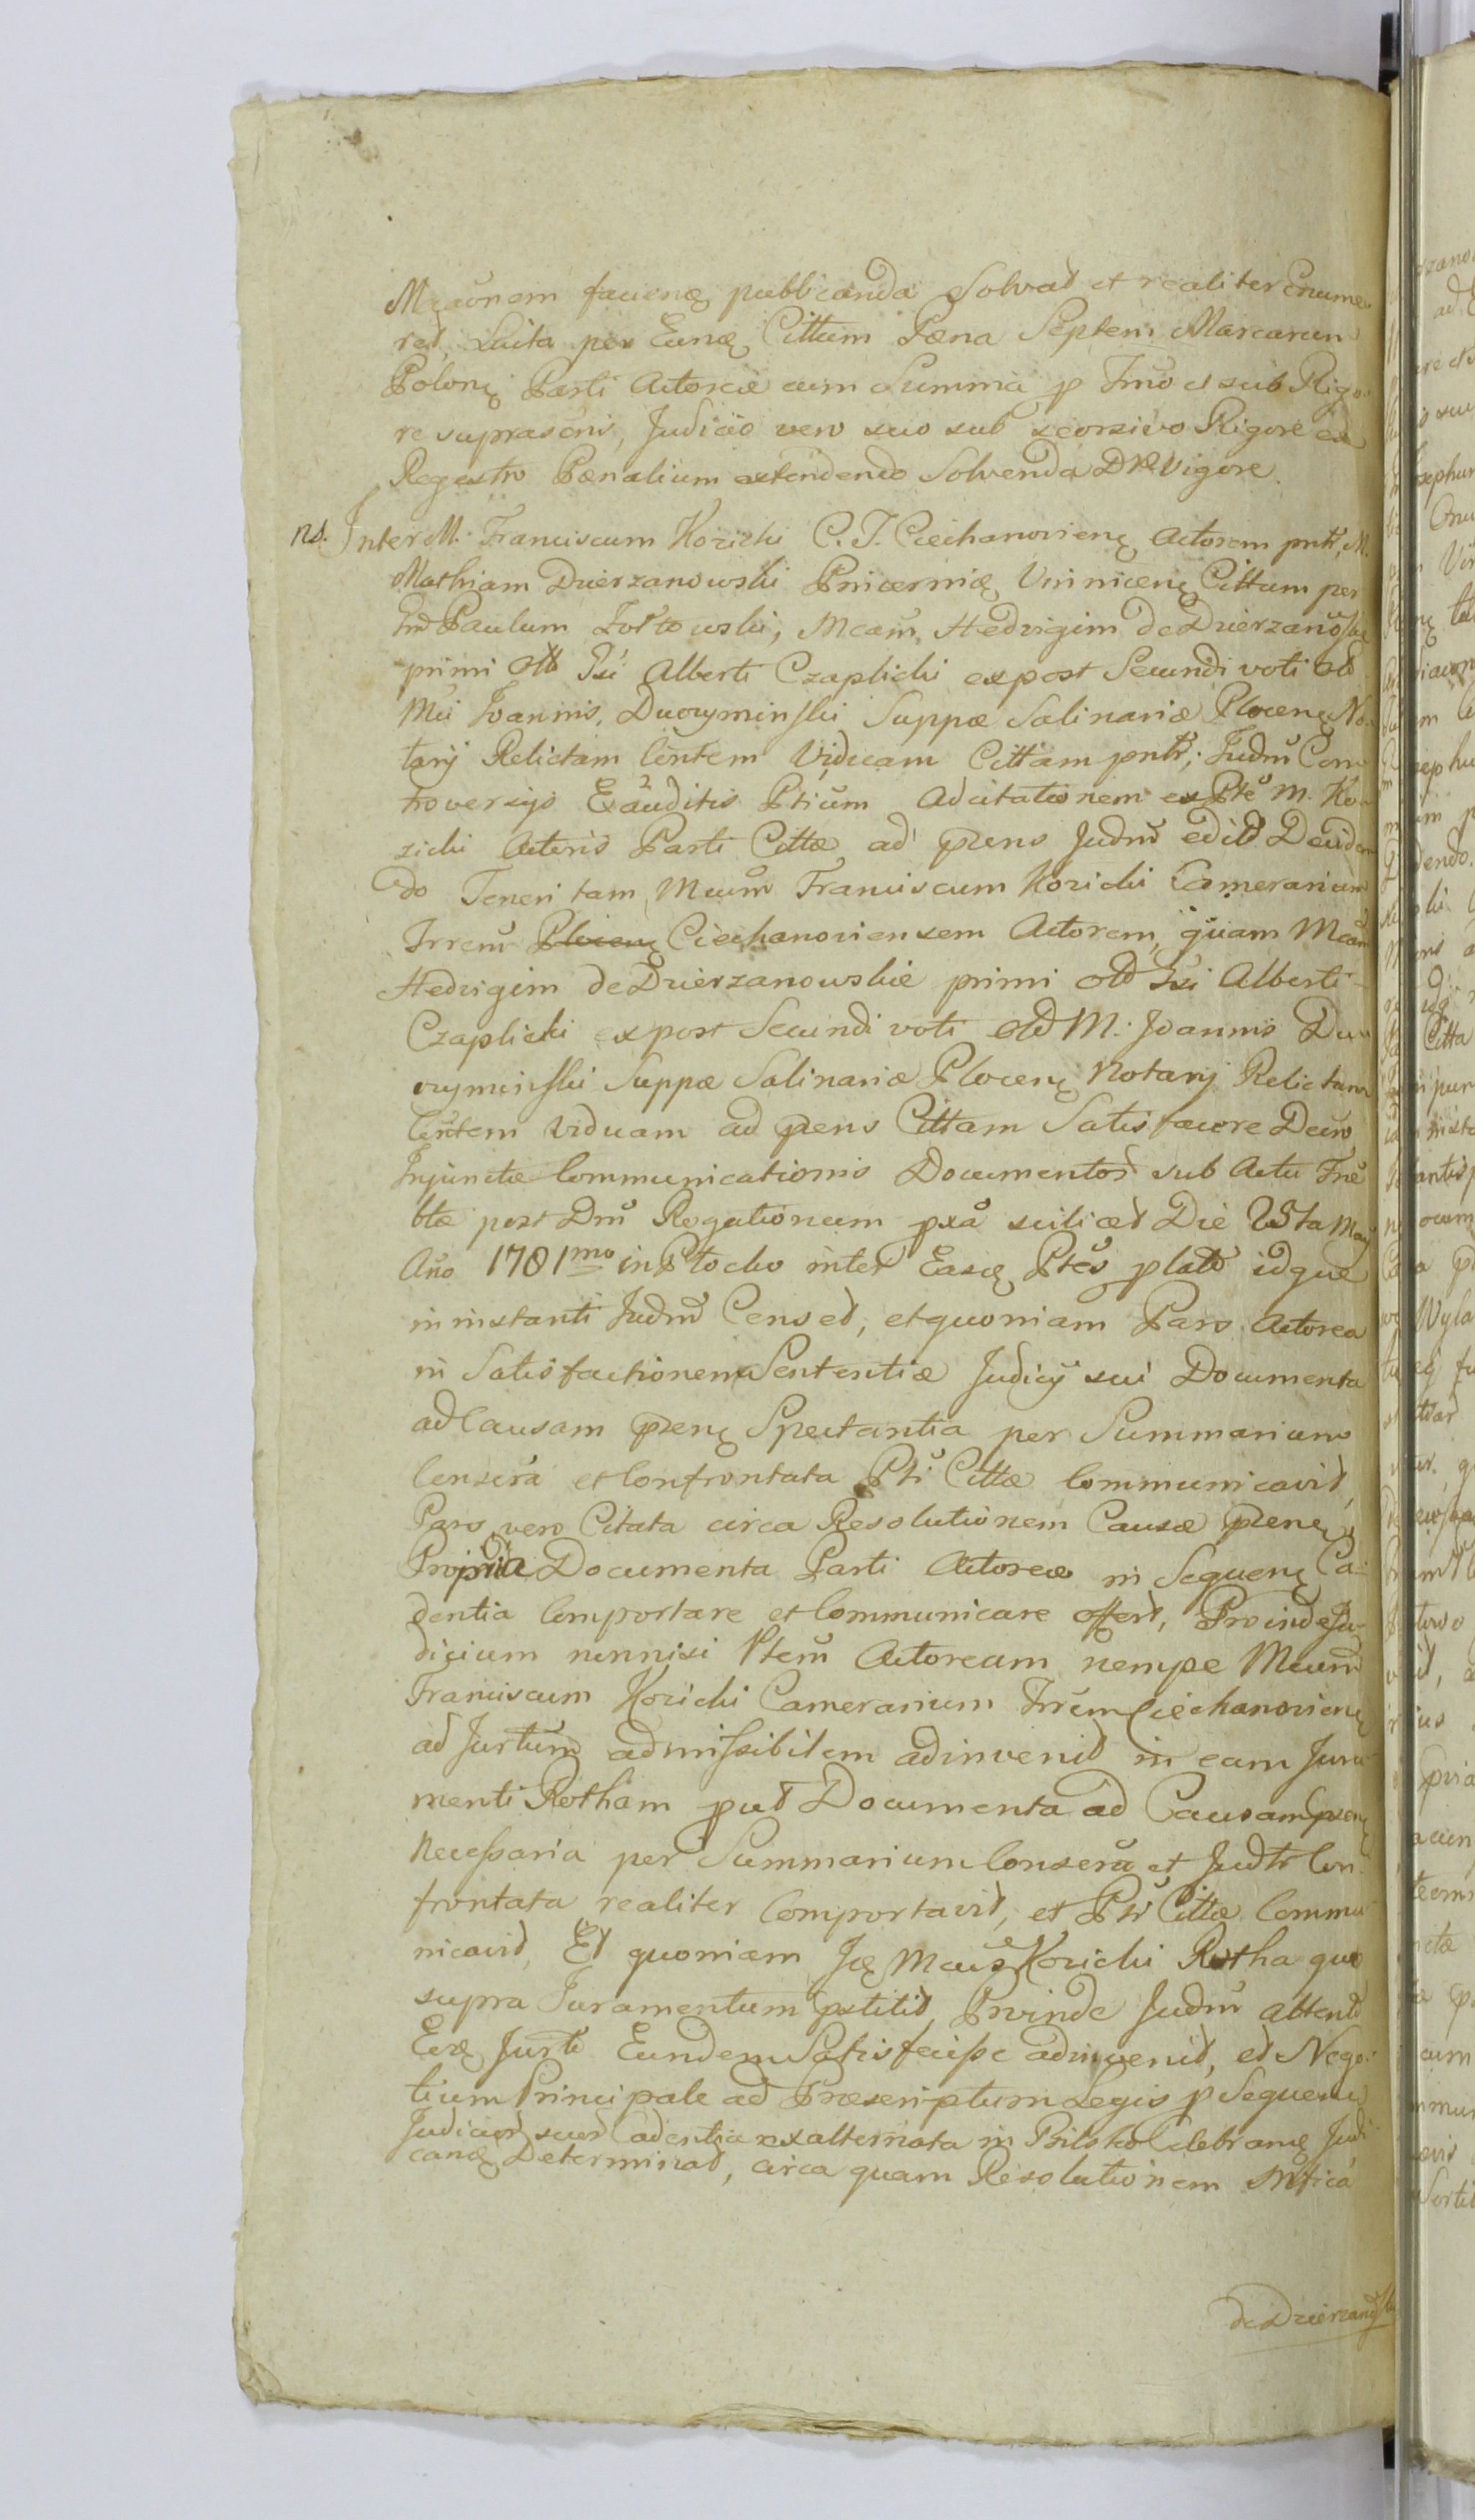 faciene publicanda Solvat et realiter Enume-
ret, Luita per Eunę Cittum Pœna Septem Marcarum
Poloni Parti Actoreæ cum Summa p et sub Rigo-
re suprascris, Judicio vero suo sub seorsivo Rigore ex
Regestro Pœnalium extendendo Solvenda Vigore.
ns. Inter M. Franciscum Kozicki C. T. Ciechanovienę Actorem pntr, M.
Mathiam Dzierzanowski Pnicernię Vinnicenę Cittum per
Paulum Zółtowski, Mcam, Hedvigim de Dzierzanowskie
primi Alberti Czaplicki expost Secundi voti
Mci Joannis, Dworyminski Suppæ Salinariæ Plocenę No-
tarij Relictam Cintem Viduam Cittam pntr; Judm Con-
troversys Exauditis Ptium Adcitationem ex Pte M. Ko-
zicki Actoris Parti Cittæ ad prens Judm edit Deciden-
do Teneri tam Mcum Franciscum Kozicki Camerarium
Trrem Plocenę Ciechanoviensem Actorem, quam Mcam
Hedvigim de Dzierzanowskie primi Alberti
Czaplicki expost Secundi voti M. Joannis Dw-
oryminski Suppæ Salinariæ Plocenę Notarij Relictam
Cintem Viduam ad prens Cittam Satisfacere Decro
Injunctæ Communicationis Documentor sub Actu
post Dni Rogationum pxa scilicet Die 25ta May
Ano 1781mo in Plocko inter Easę Ptes plato idque
in instanti Judm Censet, et quoniam Pars Actorea
in Satisfactionem Sententiæ Judicij sui Documenta
ad Causam prenę Spectantia per Summarium
Consera et Confrontata Pti Cittæ Communicavit,
Pars vero Citata circa Resolutionem Causæ prenę
Propria Documenta Parti Actoreæ in Sequenę Ca-
dentia Comportare et Communicare offert, Proinde Ju-
dicium nonnisi Ptem Actoream nempe Mcum
Franciscum Kozicki Camerarium Trrem Ciechanovienę
ad Jurtum admissibilem adinvenit in eam Jura-
menti Rotham put Documenta ad Causam prenę
Necessaria per Summarium Consera et Judtr Con-
frontata realiter Comportavit, et Pti Cittæ Commu-
nicavit, Et quoniam Ię Mcus Kozicki Rotha quo
supra Juramentum pstitit, Proinde Judm attento
Eoę Jurto Eundem Satisfecisse adinvenit, et Nego-
tium Principale ad Præscriptum Legis p Sequenę
Judicior suor Cadentia exalternata in Bilsko Celebranę Judi-
canę Determinat, circa quam Resolutionem Mfica
de Dzierzanowskie